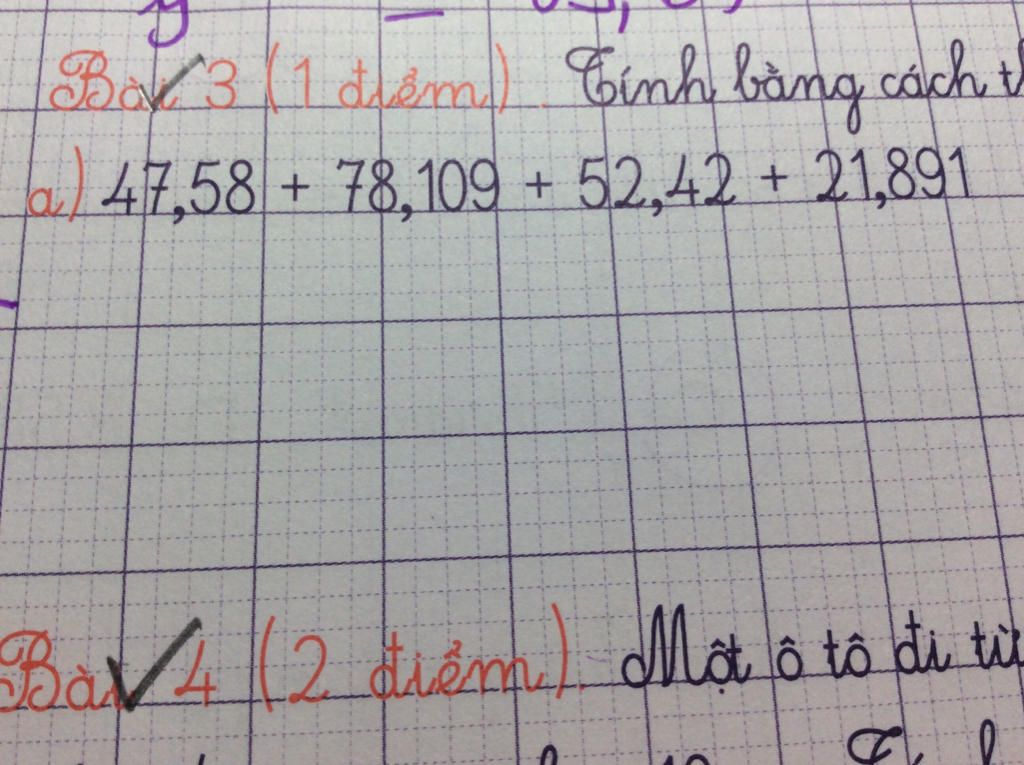 Bài 3 (1 điểm). Tính bằng cách
a) 47,58 + 78,109 + 52,42 + 21,891
Bài 4 (2 điểm). Một ô tô đi từ